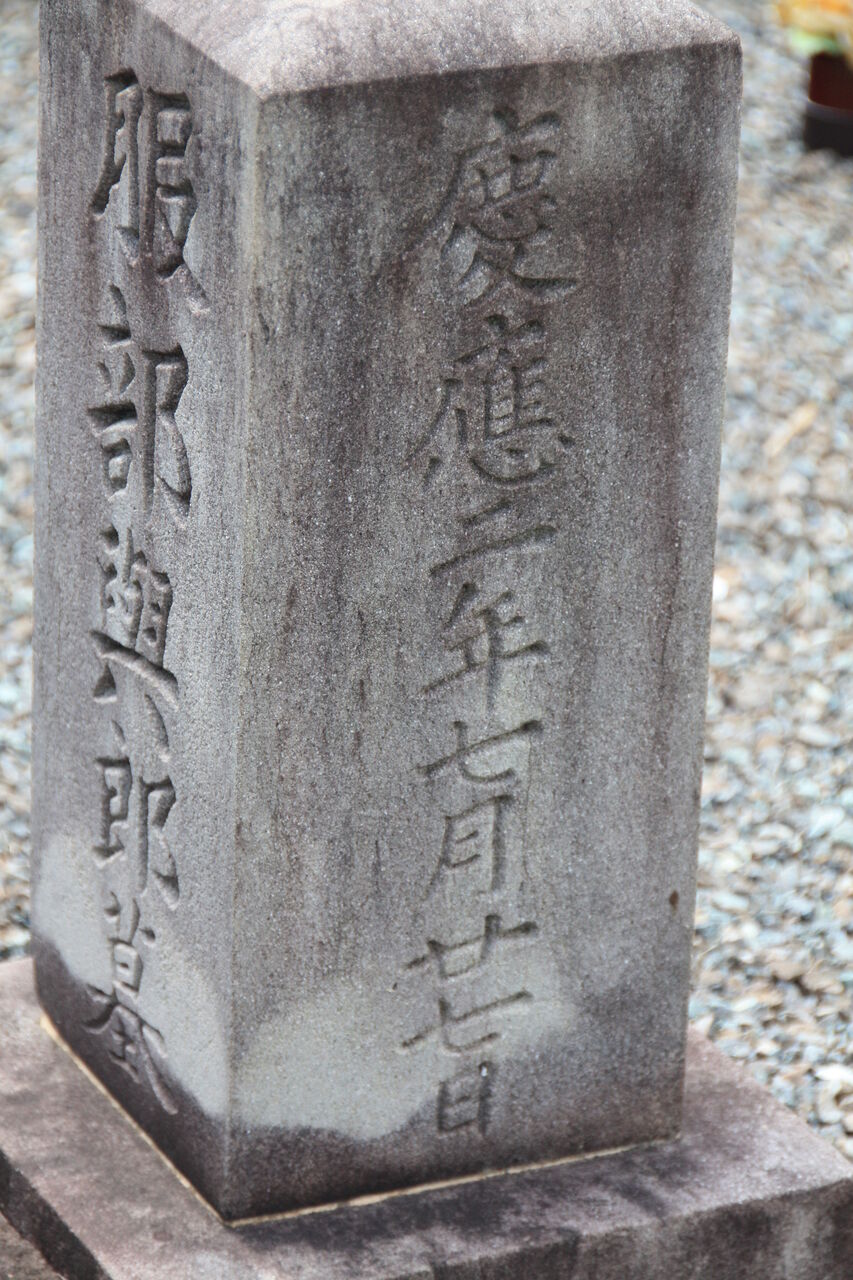 服部與郎墓
慶應二年七月廿七日